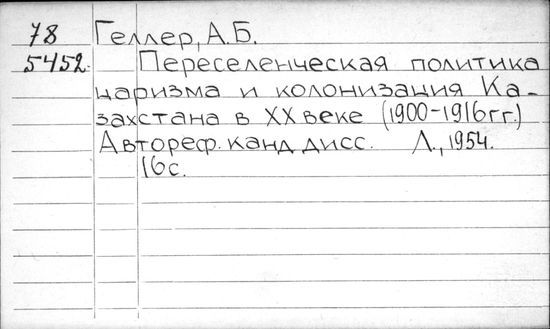 78 Геллер, А.Б.
5452 Переселенческая политика
царизма и колонизация Ка-
захстана в XX веке (1900-1916гг.)
Автореф. канд дисс. Л., 1954.
16с.